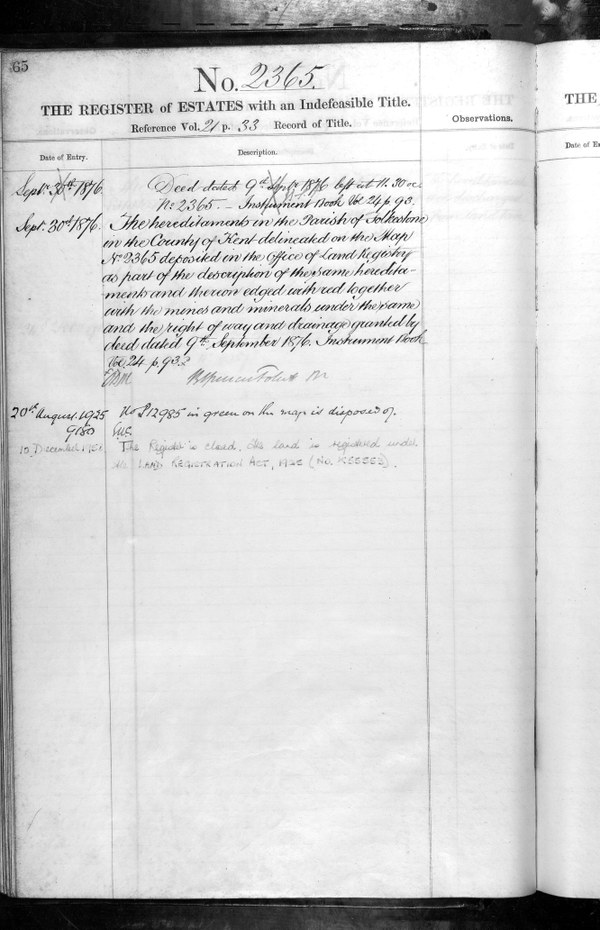 65
No. 2365.
THE REGISTER of ESTATES with an Indefeasible Title.
Reference Vol. 21 p. 33 Record of Title.
Observations.
Date of Entry.
Description.
Sept. 1876
Deed dated 9th Septr 1876 left at 11.30 oc
No 2365. — Instrument Book Vol 24 p 93.
Sept. 30th 1876.
The hereditaments in the Parish of Folkestone
in the County of Kent delineated on the Map
No 2365 deposited in the Office of Land Registry
as part of the description of the same heredita-
ments and thereon edged with red together
with the mines and minerals under the same
and the right of way and drainage granted by
deed dated 9th September 1876. Instrument Book
Vol. 24 p. 93.
20th August 1925
No P12985 in green on the map is disposed of.
10 December
The Register is closed, the land is registered under
the LAND REGISTRATION ACT, 1925
THE
Date of En